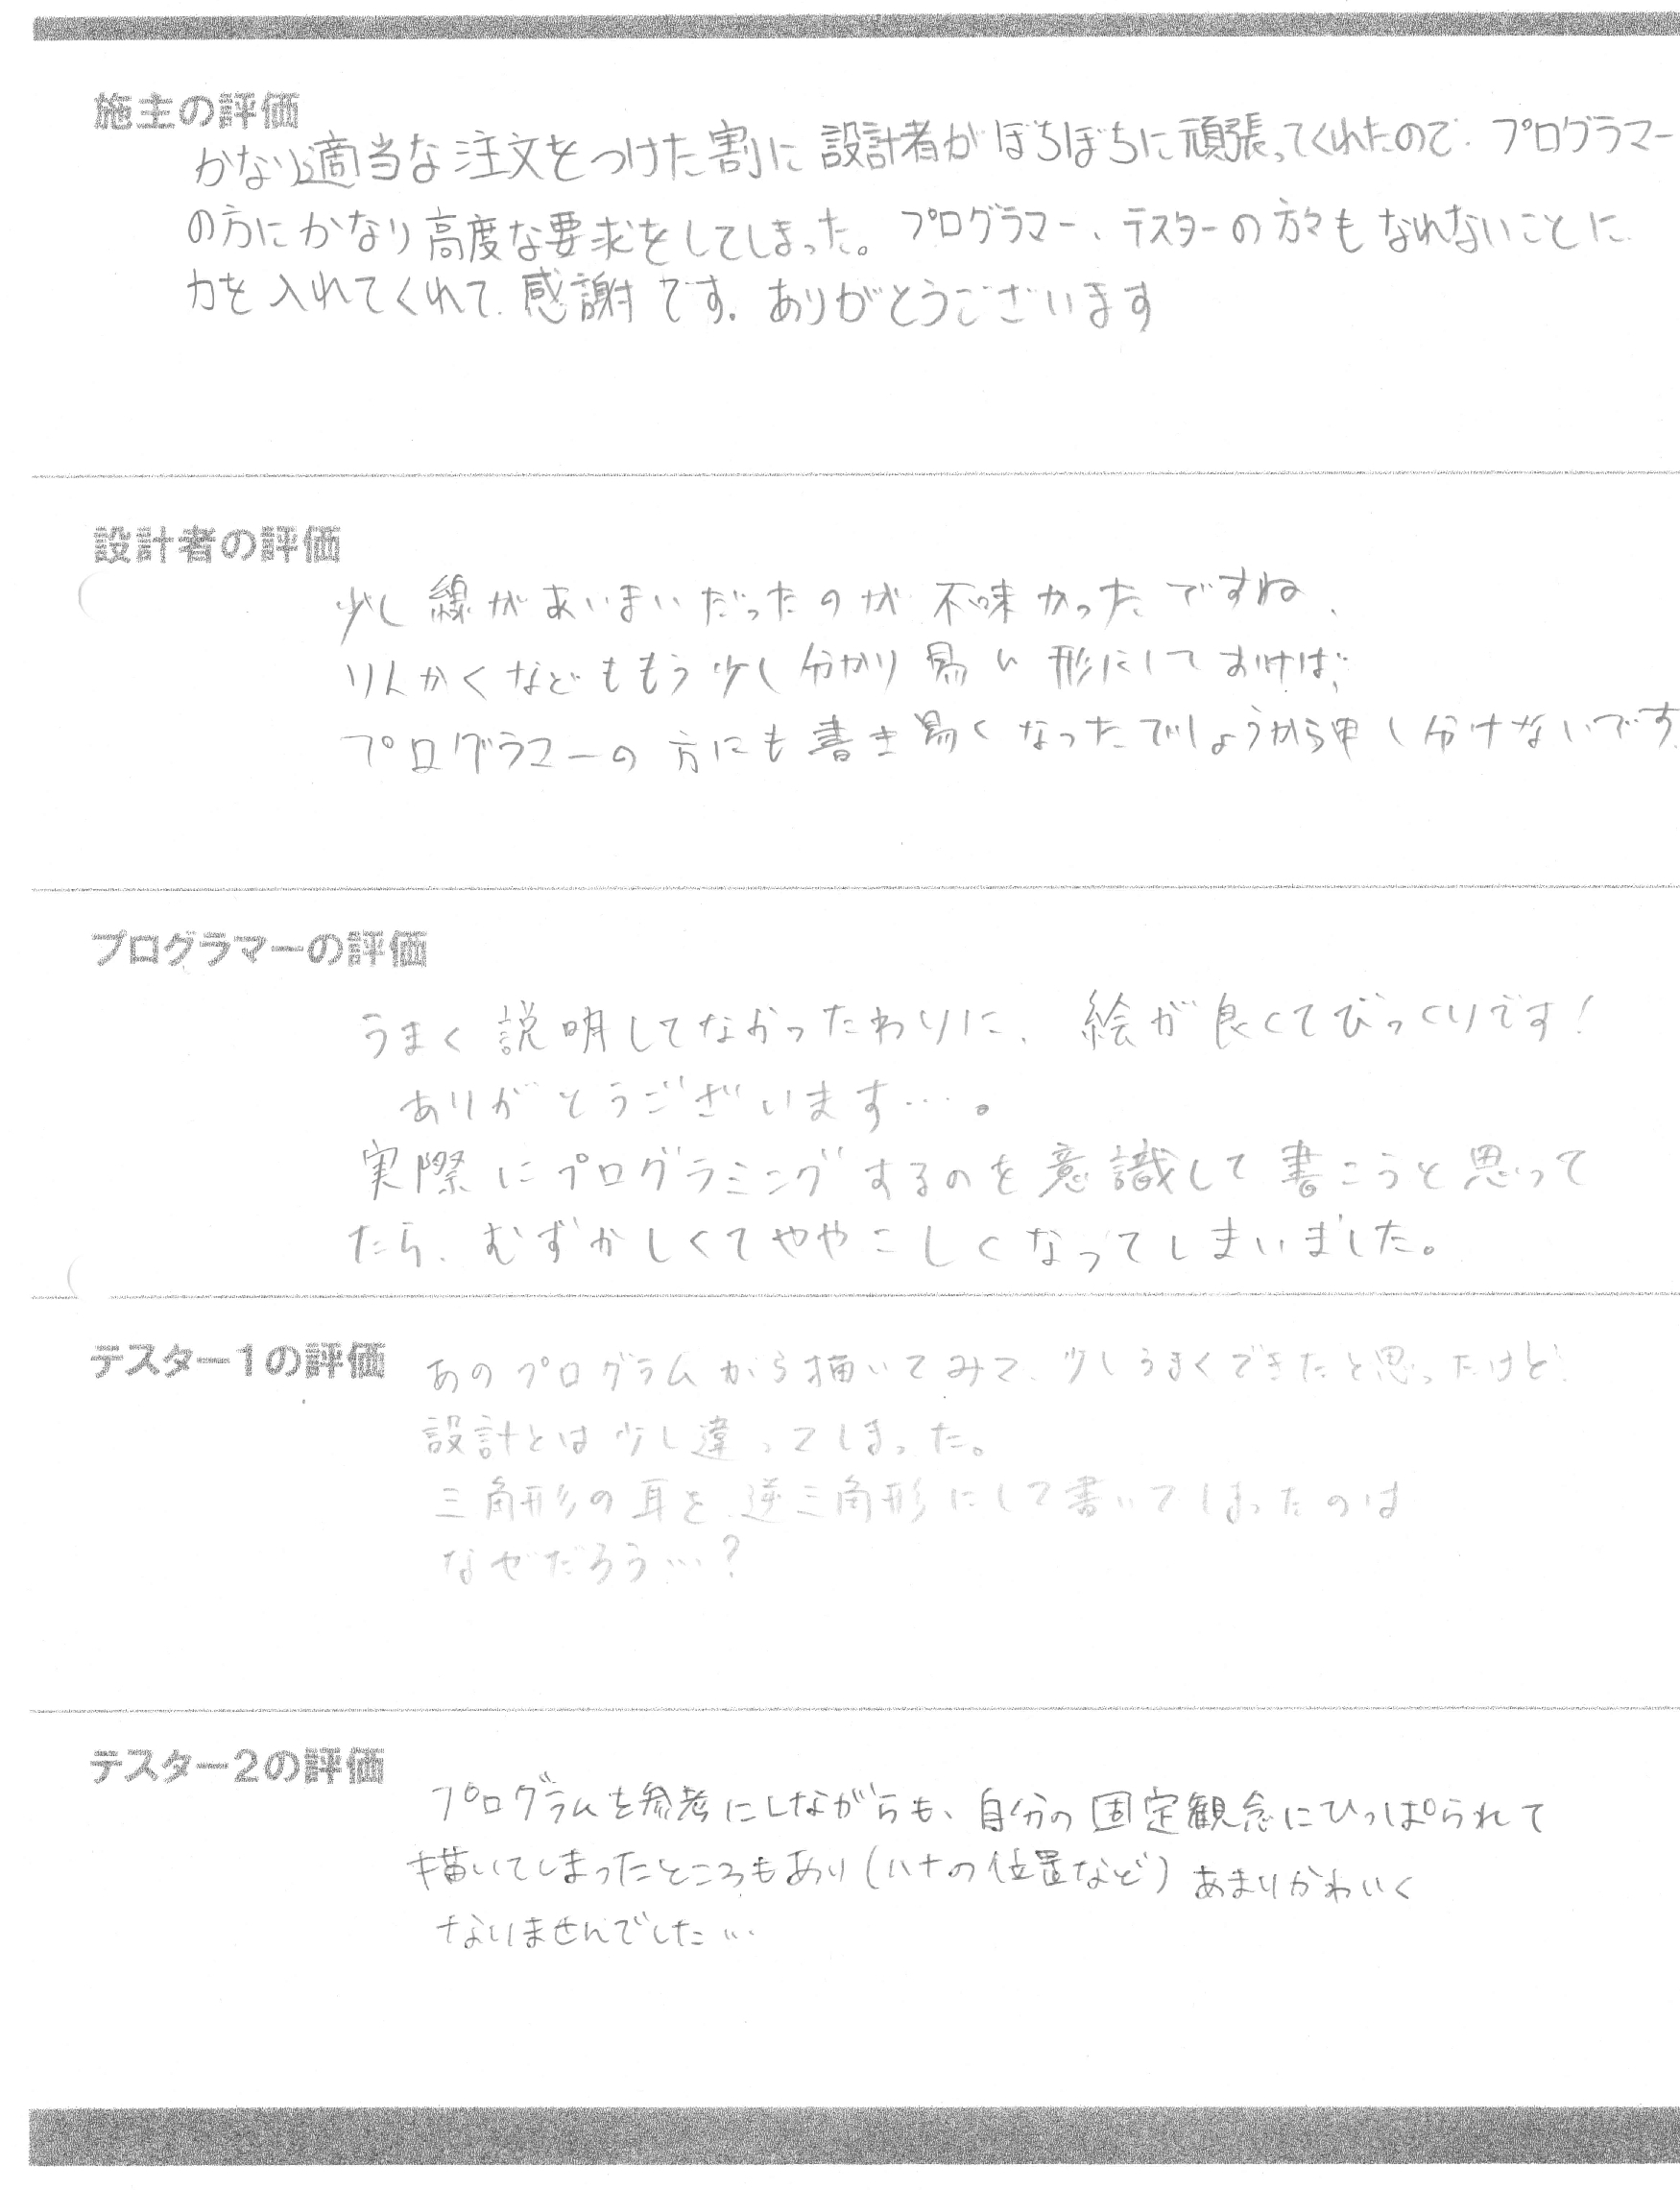 施主の評価
かなり適当な注文をつけた割に設計者がぼちぼちに頑張ってくれたので、プログラマー
の方にかなり高度な要求をしてしまった。プログラマー、テスターの方々もなれないことに
力を入れてくれて、感謝です。ありがとうございます
設計者の評価
少し線があいまいだったのが不味かったですね、
りんかくなどももう少し分かり易い形にしておけば、
プログラマーの方にも書き易くなったでしょうから申し分けないです。
プログラマーの評価
うまく説明してなかったわりに、絵が良くてびっくりです！
ありがとうございます…。
実際にプログラミングするのを意識して書こうと思って
たら、むずかしくてややこしくなってしまいました。
テスター1の評価
あのプログラムから描いてみて、少しうまくできたと思ったけど、
設計とは少し違ってしまった。
三角形の耳を、逆三角形にして書いてしまったのは
なぜだろう…？
テスター2の評価
プログラムを参考にしながらも、自分の固定観念にひっぱられて
描いてしまったところもあり(ハナの位置など)あまりかわいく
なりませんでした…